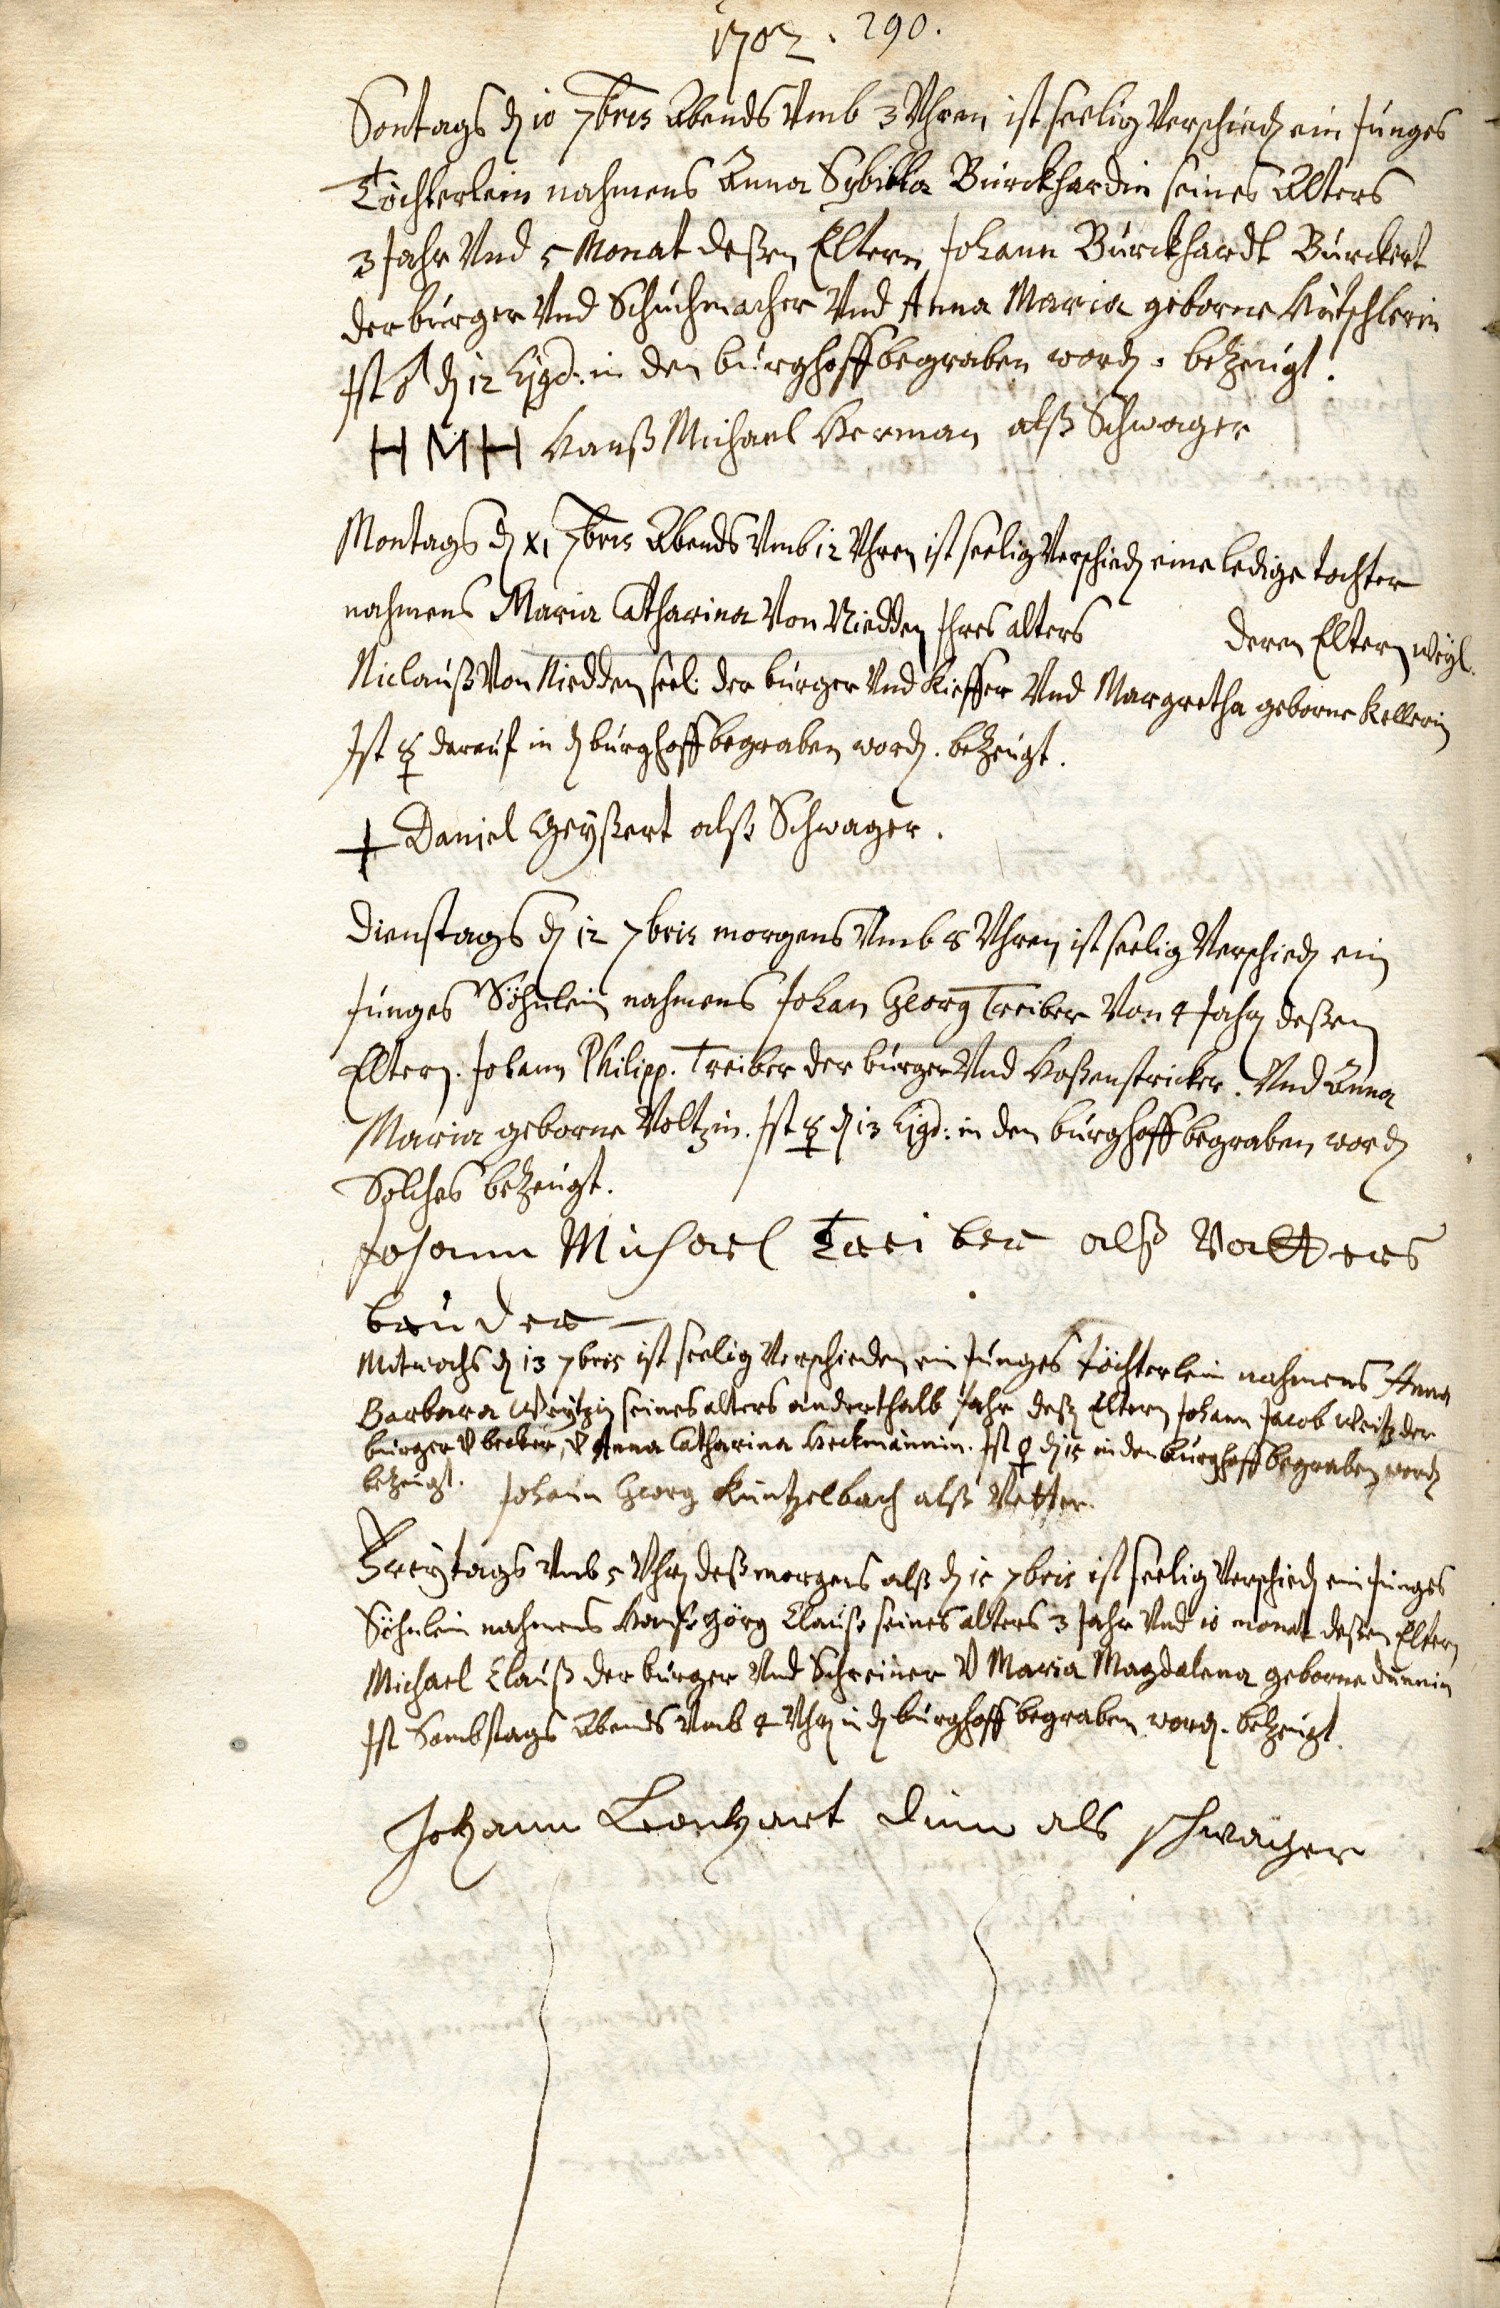 1702. 290.
Sontags d 10 7bris Abends Vmb 3 Vhren ist seelig Verschied ein Junges
Töchterlein nahmens Anna Sybilla Burckhardin seines Alters
3 Jahr Vnd 5 Monat deßen Eltern Johann Burckhardt Burckert
der burger Vnd Schuhmacher Vnd Anna Maria geborne
Ist ♂ d 12 hjgd: in den burghoff begraben word. bezeugt.
HMH Hanß Michael Herman alß Schwager
Montags d XI 7bris Abends Vmb 12 Vhren ist seelig Verschied eine ledige tochter
nahmens Maria Catharina Von Niedden Ihres alters deren Eltern weyl.
Niclauß Von Niedden seel: der burger Vnd Kieffer Vnd Margretha geborne Kellerin
Ist ☿ darauf in d burghoff begraben word. bezeugt.
+ Daniel Geyßert alß Schwager.
Dienstags d 12 7bris morgens Vmb 8 Vhren ist seelig Verschied ein
Junges Söhnlein nahmens Johan Georg Treiber Von 4 Jahr deßen
Eltern. Johann Philipp. Treiber der burger Vnd Hoßenstricker. Vnd Anna
Maria geborne Voltzin. Ist ☿ d 13 hjgd: in den burghoff begraben word
Solches bezeugt.
Johann Michael Treiber alß Vatters
bruder
Mitwochs d 13 7bris ist seelig Verschieden ein Junges Töchterlein nahmens Anna
Barbara Weytzin seines alters anderthalb Jahr deß Eltern Johann Jacob Weitz der
burger V becker, V Anna Catharina Heckmännin. Ist ♀ d 15 in den burghoff begraben word
bezeugt. Johann Georg Kuntzelbach alß Vetter.
Freytags Vmb 5 Vhr deß morgens alß d 15 7bris ist seelig Verschied ein Junges
Söhnlein nahmens Hanß Görg Clauß seines alters 3 Jahr Vnd 10 monat deßen Eltern
Michael Clauß der burger Vnd Schreiner V Maria Magdalena geborne dünnin
Ist Sambstags Abends Vmb 4 Vhr in d burghoff begraben word. bezeugt
Johann Lenhart dinn als schwager